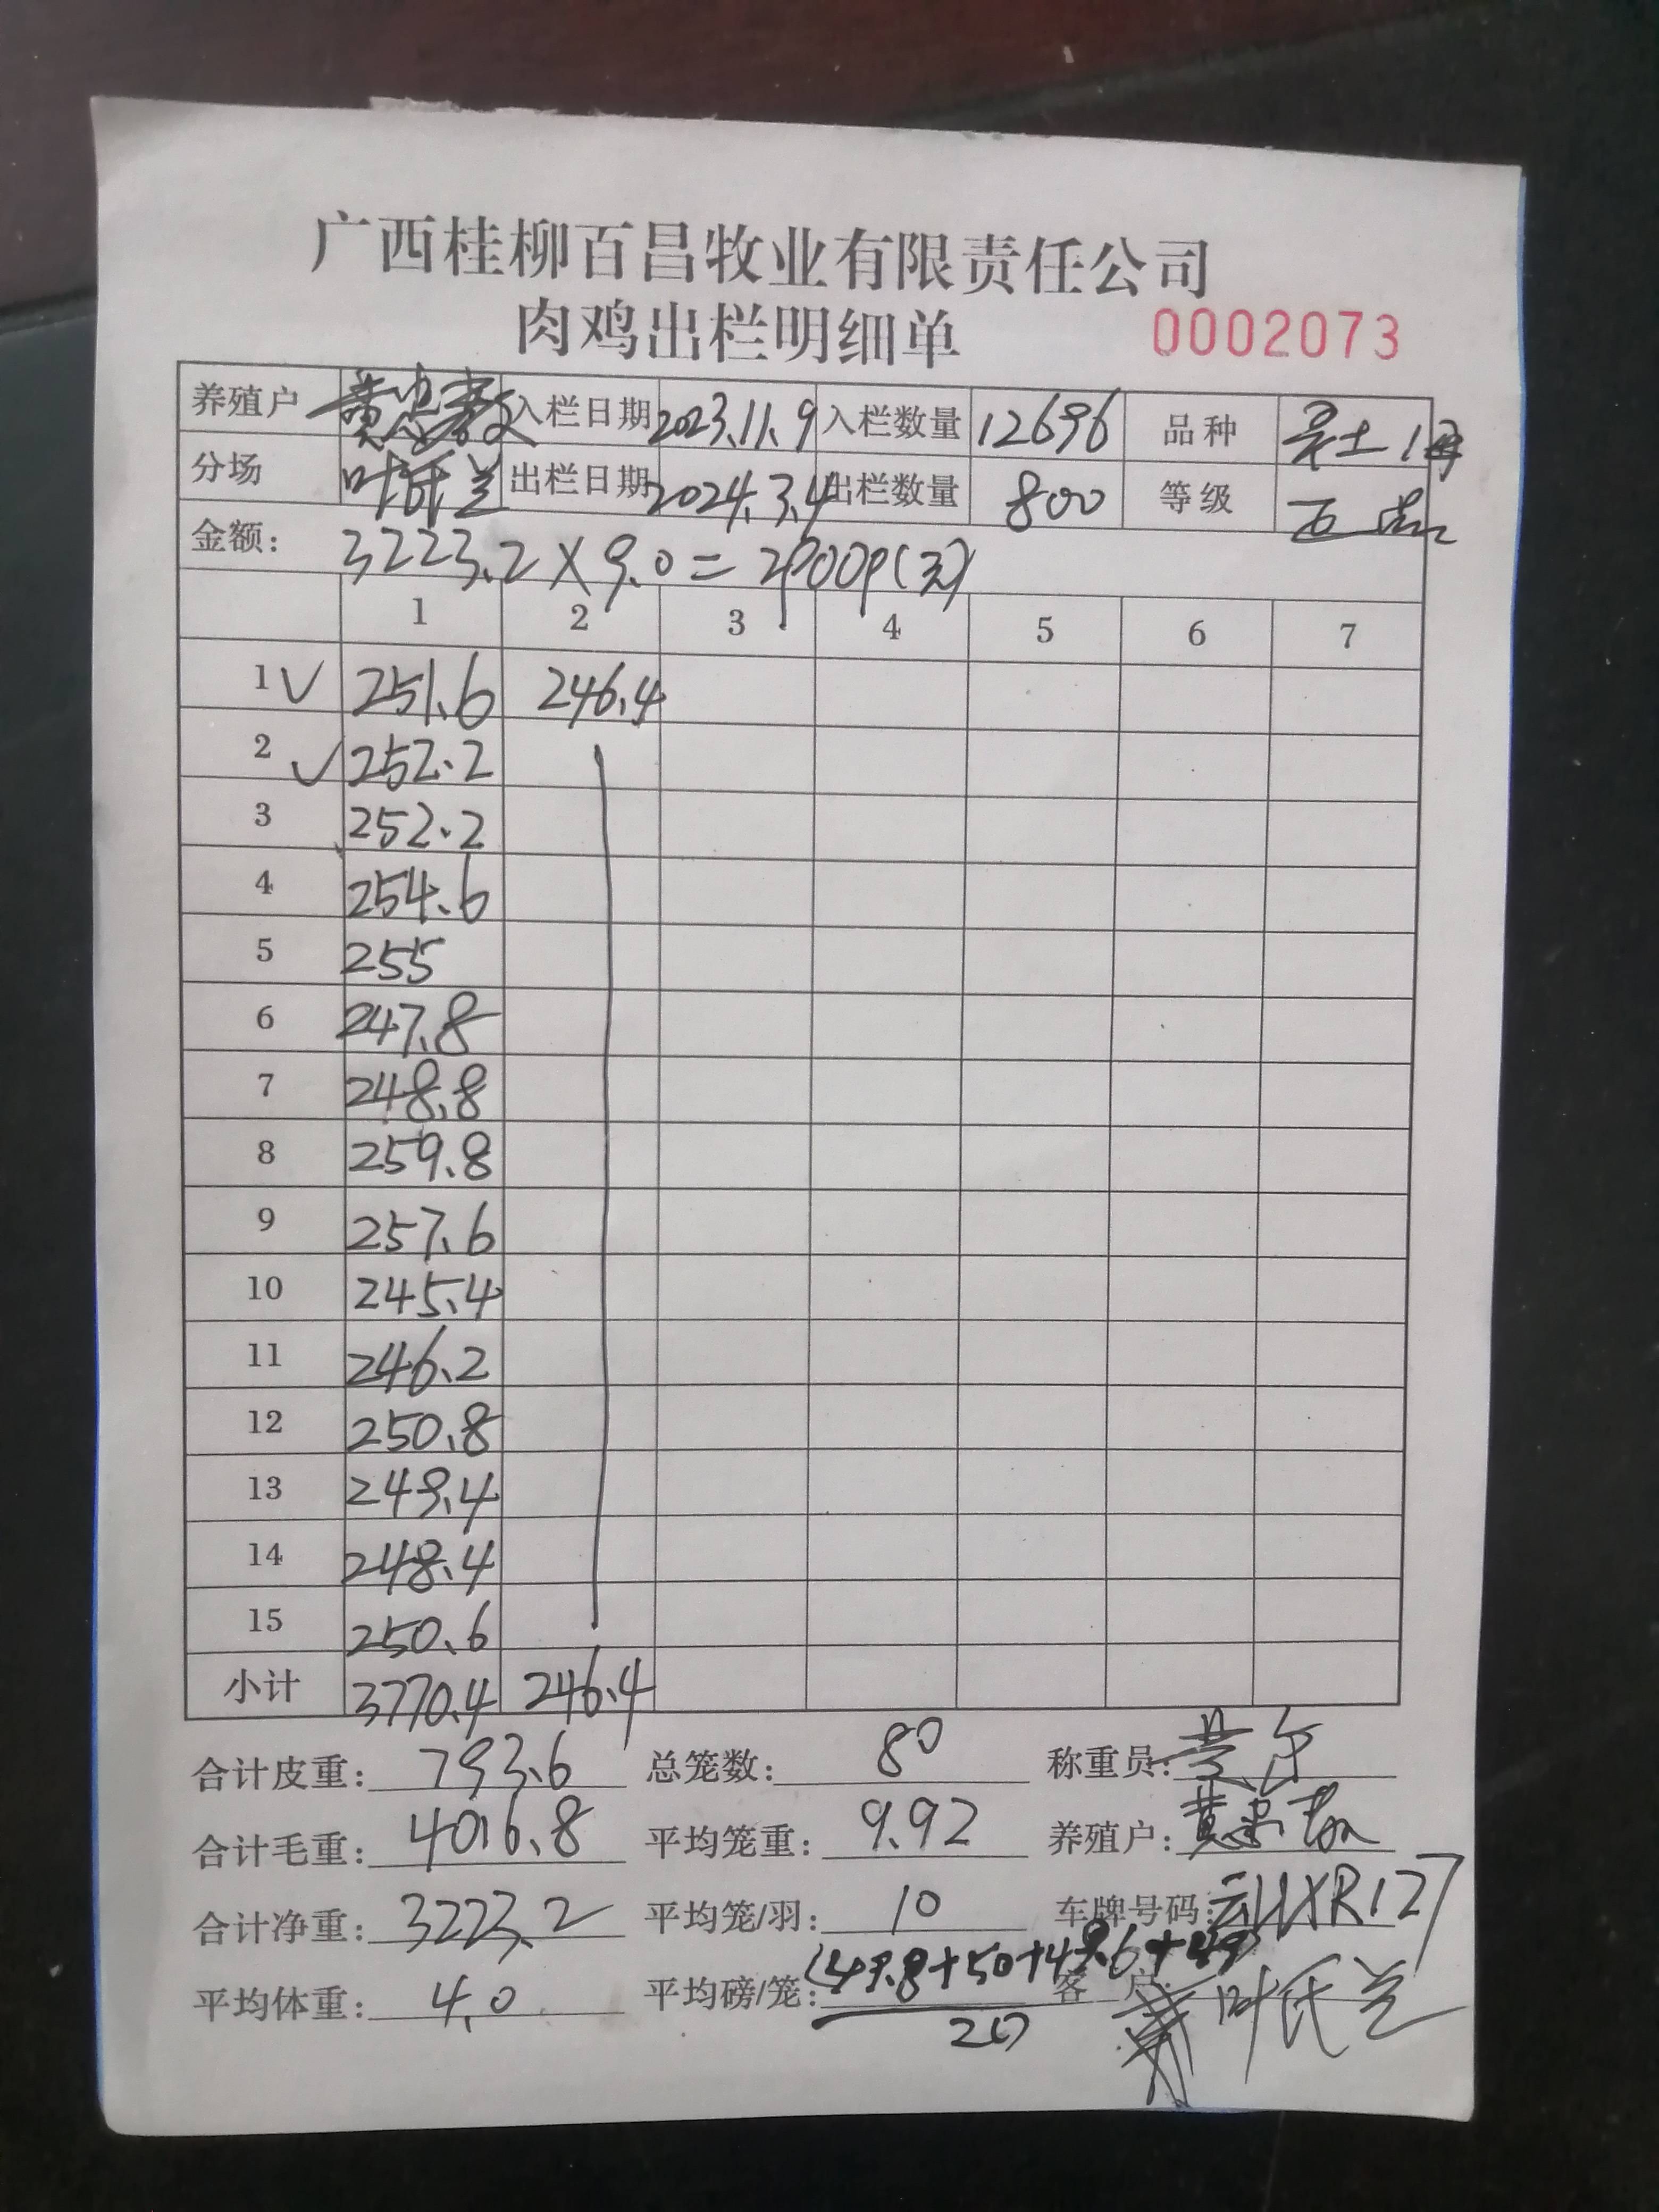 广西桂柳百昌牧业有限责任公司
肉鸡出栏明细单 0002073
养殖户 入栏日期 2023.11.9 入栏数量 12696 品种
分场 叶氏兰 出栏日期 2024.3.4 出栏数量 800 等级
金额: 3223.2×9.0=29009(元)
1 2 3 4 5 6 7
1 ✓ 251.6 246.4
2 ✓ 252.2
3 252.2
4 254.6
5 255
6 247.8
7 248.8
8 259.8
9 257.6
10 245.4
11 246.2
12 250.8
13 249.4
14 248.4
15 250.6
小计 3770.4 246.4
合计皮重: 793.6 总笼数: 80 称重员:
合计毛重: 4016.8 平均笼重: 9.92 养殖户:
合计净重: 3223.2 平均笼/羽: 10 车牌号码:
平均体重: 4.0 平均磅/笼: (49.8+50+49.6+49) 客户: 叶氏兰
20